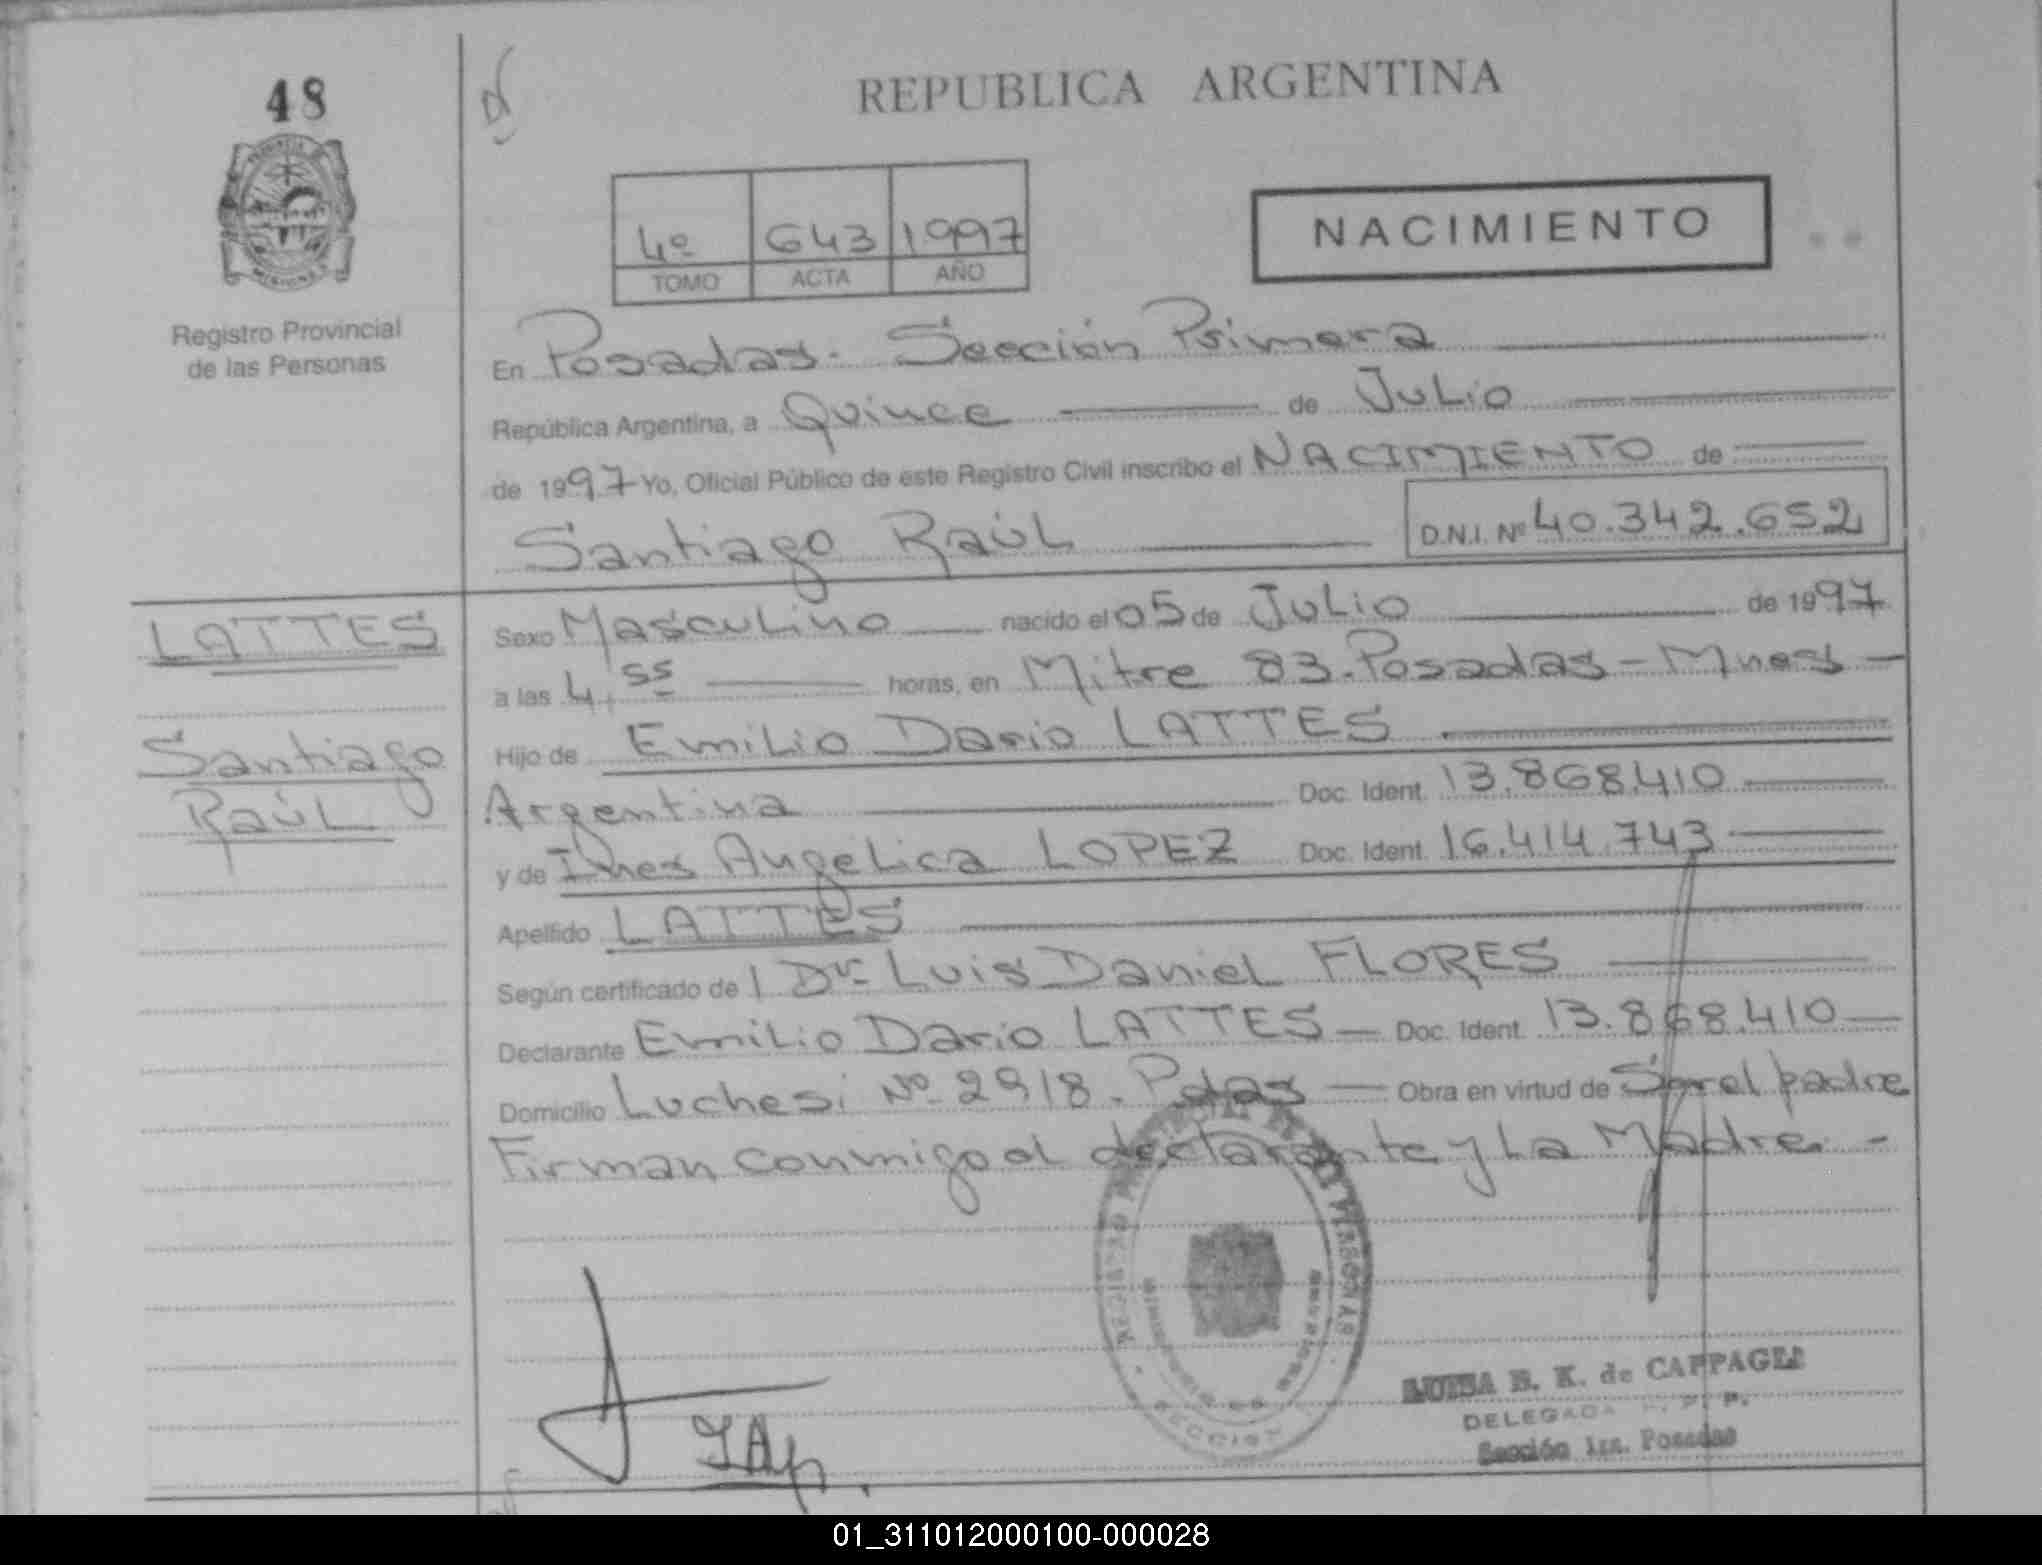 48
REPUBLICA ARGENTINA
4º 643 1997
TOMO ACTA AÑO
NACIMIENTO
Registro Provincial
de las Personas
En Posadas. Sección Primera
República Argentina, a Quince de Julio
de 1997 Yo, Oficial Público de este Registro Civil inscribo el NACIMIENTO de
Santiago Raúl D.N.I. Nº 40.342.652
LATTES
Santiago
Raúl
Sexo Masculino nacido el 05 de Julio de 1997
a las 4,55 horas, en Mitre 83. Posadas - Mnes -
Hijo de Emilio Dario LATTES
Argentina Doc. Ident. 13.868.410
y de Ines Angelica LOPEZ Doc. Ident. 16.414.743
Apellido LATTES
Según certificado de | Dr. Luis Daniel FLORES
Declarante Emilio Dario LATTES - Doc. Ident. 13.868.410
Domicilio Luchesi Nº 2918. Pdas - Obra en virtud de Ser el padre
Firman conmigo el declarante y La Madre. -
LUISA B. K. de CAPPAGLI
DELEGADA R. P. P.
Sección 1ra. Posadas
01_311012000100-000028